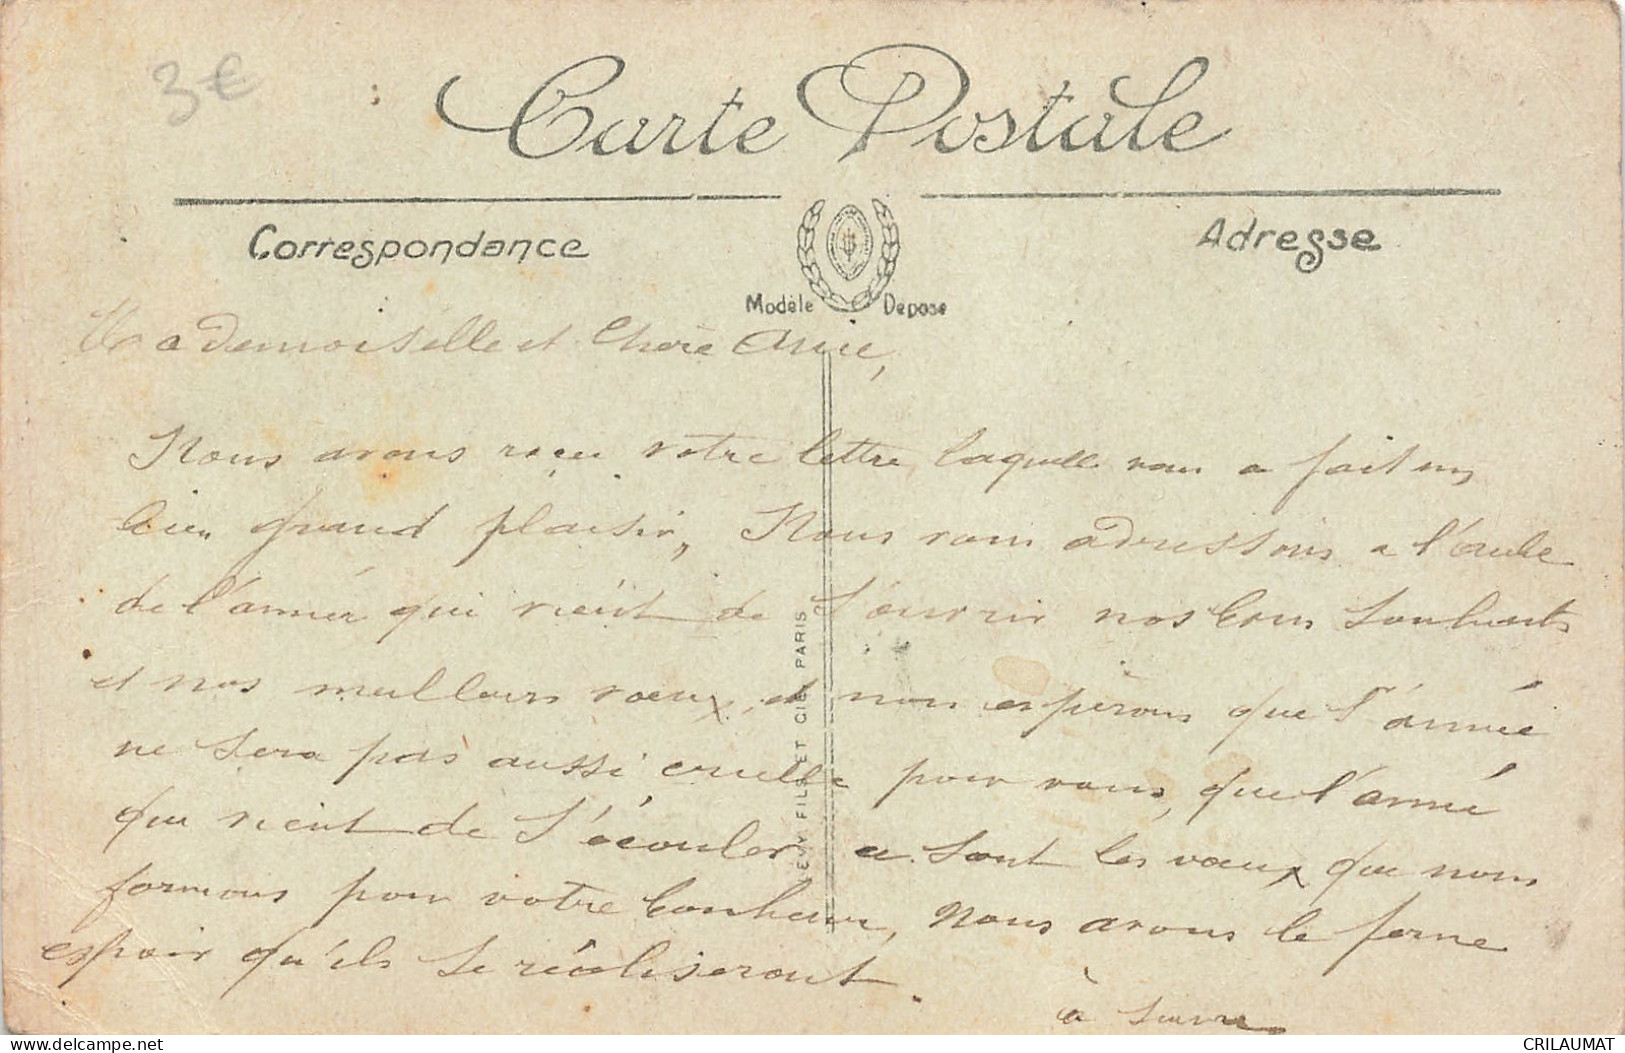 3€
Carte Postale
Correspondance
Adresse
Modèle Deposé
Mademoiselle et Chère Amie,
Nous avons reçu votre lettre laquelle nous a fait un
bien grand plaisir, Nous vous adressons a l'aube
de l'année qui vient de s'ouvrir nos bons Souhaits
et nos meilleurs vœux, et nous espérons que l'année
ne sera pas aussi cruelle pour vous, que l'année
qui vient de s'écouler ce sont les vœux que nous
formons pour votre bonheur, Nous avons le ferme
espoir qu'ils se réaliseront.
à suivre
LEVY FILS ET CIE PARIS
CRILAUMAT